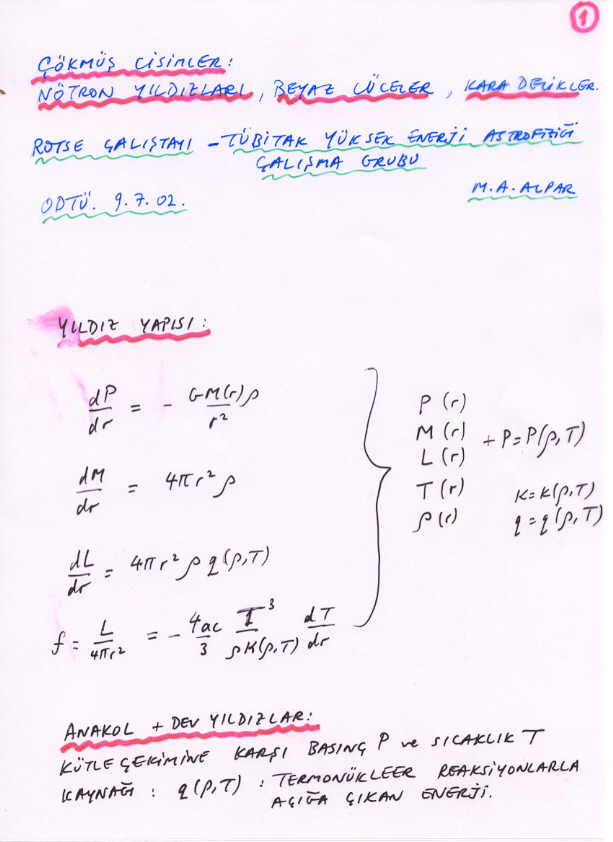 1
ÇÖKMÜŞ CİSİMLER:
NÖTRON YILDIZLARI, BEYAZ CÜCELER, KARA DELİKLER.
ROTSE ÇALIŞTAYI – TÜBİTAK YÜKSEK ENERJİ ASTROFİZİĞİ
ÇALIŞMA GRUBU
ODTÜ. 9.7.02.
M.A. ALPAR
YILDIZ YAPISI:
dP/dr = - GM(r)ρ/r²
dM/dr = 4πr²ρ
dL/dr = 4πr²ρq(ρ,T)
f = L/4πr² = - 4ac/3 T³/ρK(ρ,T) dT/dr
P(r)
M(r)
L(r)
+ P=P(ρ,T)
T(r) K=K(ρ,T)
ρ(r) q=q(ρ,T)
ANAKOL + DEV YILDIZLAR:
KÜTLE ÇEKİMİNE KARŞI BASINÇ P ve SICAKLIK T
KAYNAĞI : q(ρ,T) : TERMONÜKLEER REAKSİYONLARLA
AÇIĞA ÇIKAN ENERJİ.